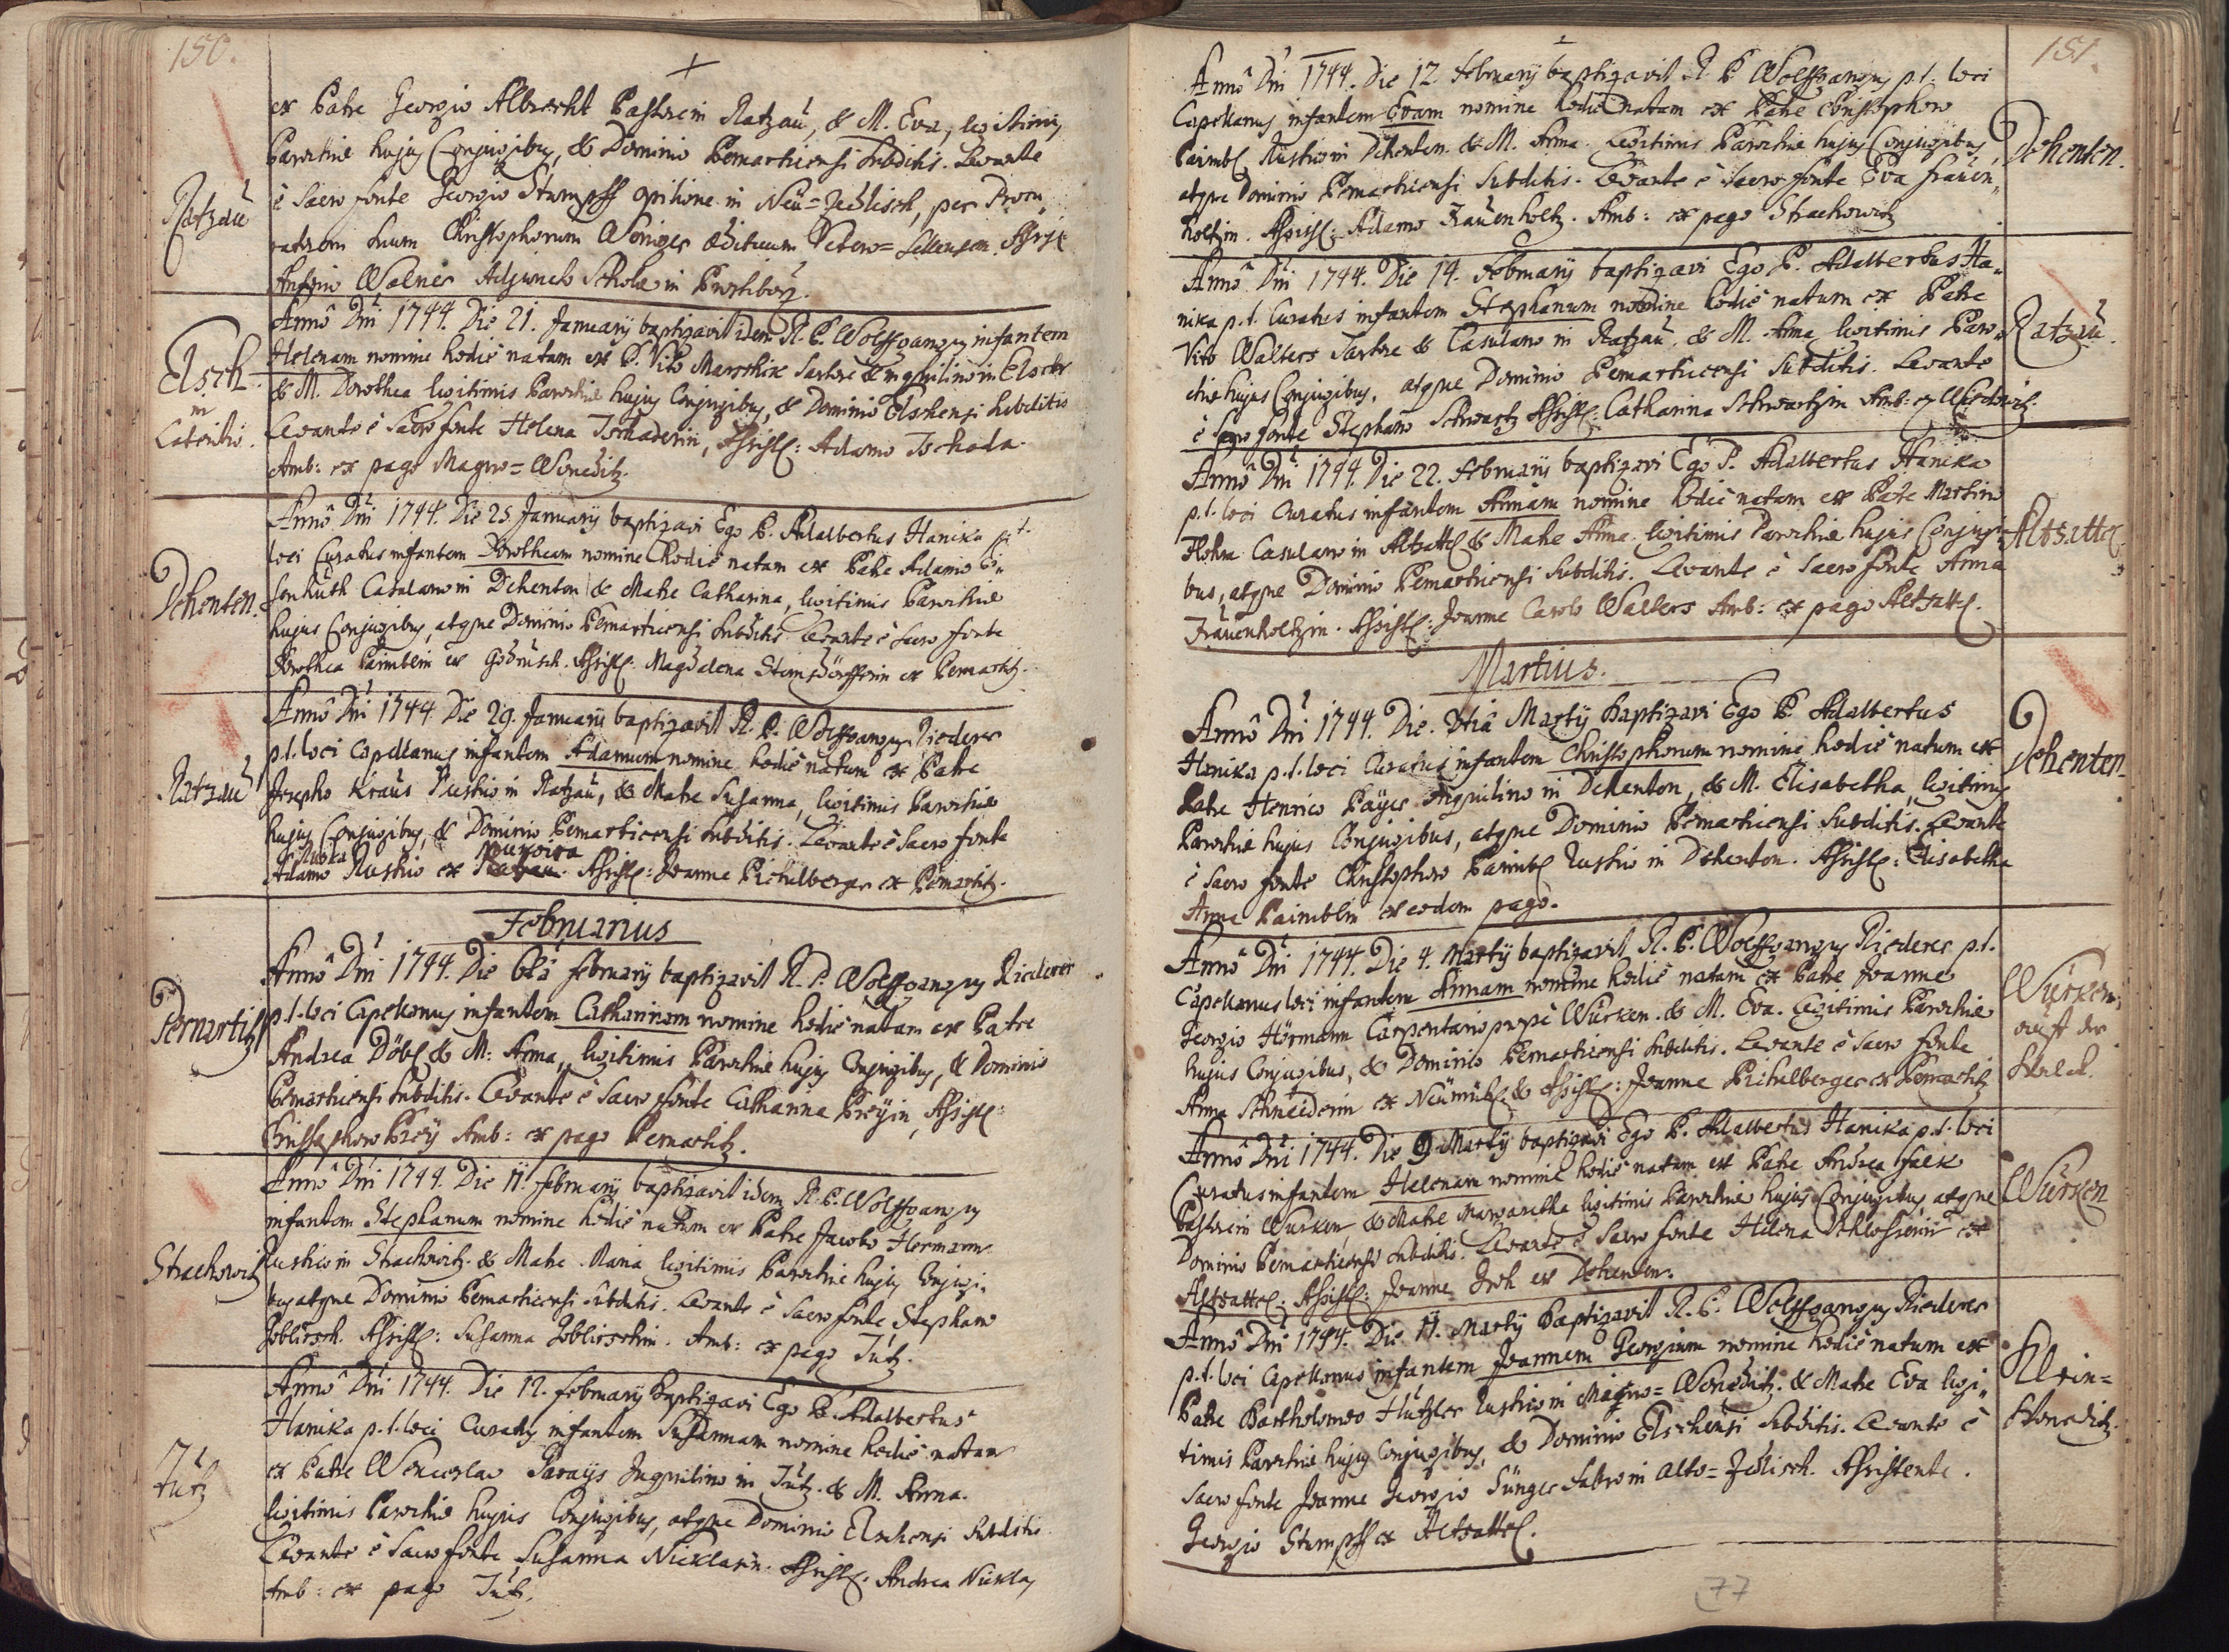 150.
ex Patre Georgio Albrecht Pastore in Ratzaŭ, & M. Eva, legitimis
Parochiæ hujus Conjugibus, & Dominio Pernarticensi subditis. Levante
Ratzaŭ
è Sacro fonte Georgio Stumpff opilione in Neŭ=Zedlisch, per Procu„
ratorem suum Christophorum Weniger ædituum Vetero= Assist
Antonio Walner Adjuncto Scholæ in
Annô Dñi 1744. Die 21. Januarij baptizavit idem R. P. Wolffgangus infantem
Elsch
in
Lateritio.
Helenam nomine hodiè natam ex P. Vito Marschik Sartore & inquilino in Elsch
& M. Dorothea legitimis Parochiæ hujus Conjugibus, & Dominio Elschensi subditis
Levante è Sacro fonte Helena Tschaderin, Assistē: Adamo Tschada.
Amb: ex pago Magno=Wonetitz.
Annô Dñi 1744. Die 25. Januarij baptizavi Ego P. Adalbertus Hanika p.t.
loci Curatus infantem Dorotheam nomine hodiè natam ex Patre Adamo
Dehenten.
Casulario in Dehenten & Matre Catharina, legitimis Parochiæ
hujus Conjugibus, atque Dominio Pernarticensi subditis. Levante è Sacro fonte
Dorothea Paimblin ex Godrusch. Assistē: Magdalena Steinsdörfferin ex Pernartitz.
Annô Dñi 1744. Die 29. Januarij baptizavit R. P. Wolffgangus Riederer
p.t. loci Capellanus infantem Adamum nomine hodiè natum ex Patre
Ratzaŭ
Josepho Kraŭs Rustico in Ratzaŭ, & Matre Susanna, legitimis Parochiæ
hujus Conjugibus, & Dominio Pernarticensi subditis. Levante è Sacro fonte
Adamo Rustico ex Assistē: Joanne Pichelberger ex Pernartitz.
Februarius
Annô Dñi 1744. Die 6tâ Februarij baptizavit R. P. Wolffgangus Riederer
Pernartitz
p.t. loci Capellanus infantem Catharinam nomine hodiè natam ex Patre
Andrea Döbl & M: Anna, legitimis Parochiæ hujus Conjugibus, & Dominio
Pernarticensi subditis. Levante è Sacro fonte Catharina Preÿin, Assistē:
Christophoro Preÿ Amb: ex pago Pernartitz.
Annô Dñi 1744. Die 11. Februarij baptizavit idem R. P. Wolffgangus
infantem Stephanum nomine hodiè natum ex Patre Jacobo Hermann
Strachowitz
Rustico in Strachowitz. & Matre Maria legitimis Parochiæ hujus Conjugi„
bus atque Dominio Pernarticensi subditis. Levante è Sacro fonte Stephano
Goblirsch. Assistē: Susanna Goblirschin. Amb: ex pago Tŭtz.
Annô Dñi 1744. Die 12. Februarij baptizavi Ego P. Adalbertus
Hanika p.t. loci Curatus infantem Susannam nomine hodiè natam
Tŭtz
ex Patre Wenceslao Inquilino in Tŭtz. & M. Anna.
legitimis Parochiæ hujus Conjugibus, atque Dominio Elschensi subditis
Levante è Sacro fonte Susanna Nicklasin. Assistē. Andrea Nicklas
Amb: ex pago Tŭtz.
151.
Annô Dñi 1744. Die 12. Februarij baptizavit R. P. Wolffgangus p.t. loci
Capellanus infantem Evam nomine hodiè natam ex Patre Christophoro
Dehenten.
Paimbl Rustico in Dehenten. & M. Anna. Legitimis Parochiæ hujus Conjugibus,
atque Dominio Pernarticensi subditis. Levante è Sacro fonte Eva Fraŭen„
holtzin. Assistē: Adamo Fraŭenholtz. Amb: ex pago Strachowitz
Annô Dñi 1744. Die 14. Februarij baptizavi Ego P. Adalbertus Ha„
nika p.t. Curatus infantem Stephanum nomine hodiè natum ex Patre
Ratzaŭ.
Vito Walters Sartore & Casulario in Ratzaŭ. & M. Anna legitimis Paro„
chiæ hujus Conjugibus, atque Dominio Pernarticensi subditis. Levante
è Sacro fonte Stephano Schwartz Assistē: Catharina Schwartzin Amb:
Annô Dñi 1744. Die 22. Februarij baptizavi Ego P. Adalbertus Hanika
p.t. loci Curatus infantem Annam nomine hodiè natam ex Patre Martino
Altsattl
Casulario in Altsattl & Matre Anna legitimis Parochiæ hujus Conjugi„
bus, atque Dominio Pernarticensi subditis. Levante è Sacro fonte Anna
Fraŭenholtzin. Assistē: Joanne Carolo Walters Amb: ex pago Altsattl.
Martius.
Annô Dñi 1744. Die Martij baptizavi Ego P. Adalbertus
Dehenten
Hanika p.t. loci Curatus infantem Christophorum nomine hodiè natum ex
Patre Henrico Paÿer Inquilino in Dehenten, & M. Elisabetha, legitimis
Parochiæ hujus Conjugibus, atque Dominio Pernarticensi subditis. Levante
è Sacro fonte Christophoro Paimbl Rustico in Dehenten. Assistē: Elisabetha
Anna Paimblin ex eodem pago.
Annô Dñi 1744. Die 4. Martij baptizavit R. P. Wolffgangus Riederer p.t.
Würken,
auff der
Capellanus loci infantem Annam nomine hodiè natam ex Patre Joanne
Georgio Hörmann Carpentario propè Würken. & M. Eva. Legitimis Parochiæ
hujus Conjugibus, & Dominio Pernarticensi subditis. Levante è Sacro fonte
Anna Schneiderin ex Neümühl & Assistē: Joanne Pichelberger ex Pernartitz
Annô Dñi 1744. Die 9. Martij baptizavi Ego P. Adalbertus Hanika p.t. loci
Würken
Curatus infantem Helenam nomine hodiè natam ex Patre Andrea Falk
Pastore in Würken, & Matre Margaretha legitimis Parochiæ hujus Conjugibus atque
Dominio Pernarticensi subditis. Levante è Sacro fonte Helena Schlosserin ex
Altsattl. Assistē: Joanne ex Dehenten.
Annô Dñi 1744. Die 11. Martij Baptizavit R. P. Wolffgangus Riederer
p.t. loci Capellanus infantem Joannem Georgium nomine hodiè natum ex
Klein=
Honeditz.
Patre Bartholomæo Hützler Rustico in Magno=Wonetitz. & Matre Eva legi„
timis Parochiæ hujus Conjugibus, & Dominio Elschensi subditis. Levante è
Sacro fonte Joanne Georgio Sünger Fabro in Alto=Zedlisch. Assistente.
Georgio Stumpff ex Altsattl.
77